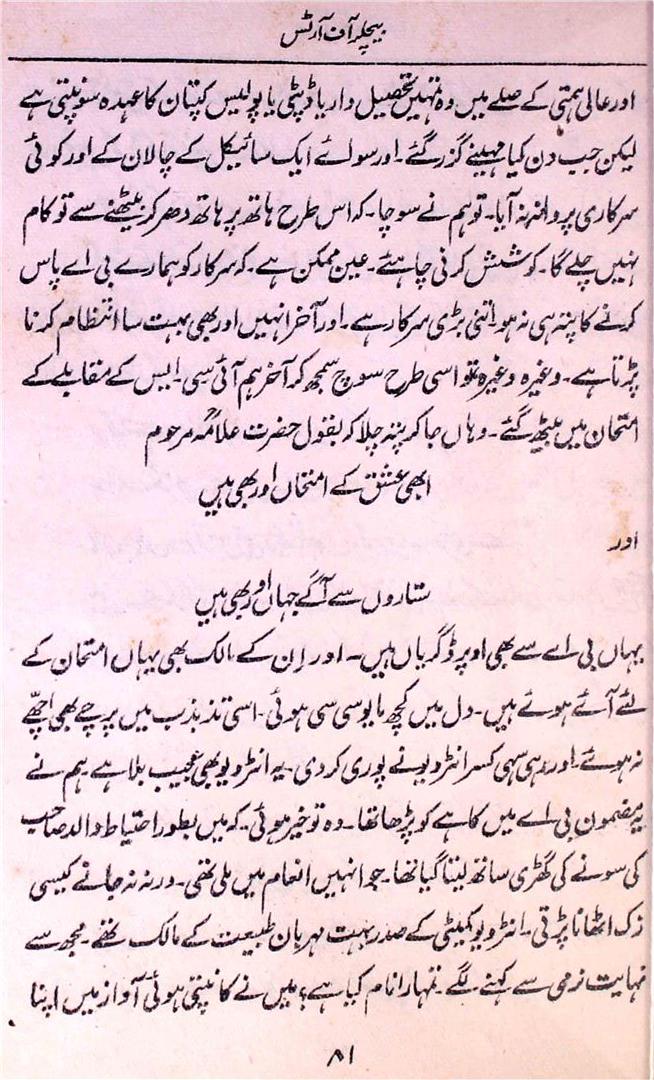 بیچلر آف آرٹس
اور عالی ہمتی کے صلے میں وہ تمہیں تحصیل دار یا ڈپٹی یا پولیس کپتان کا عہدہ سونپتی ہے
لیکن جب دن کیا مہینے گزر گئے۔ اور سوائے ایک سائیکل کے چالان کے اور کوئی
سرکاری پروانہ نہ آیا۔ تو ہم نے سوچا۔ کہ اس طرح ہاتھ پر ہاتھ دھر کر بیٹھنے سے تو کام
نہیں چلے گا۔ کوشش کرنی چاہئے۔ عین ممکن ہے۔ کہ سرکار کو ہمارے بی اے پاس
کرنے کا پتہ ہی نہ ہو اتنی بڑی سرکار ہے۔ اور آخر انہیں اور بھی بہت سا انتظام کرنا
پڑتا ہے۔ وغیرہ وغیرہ تو اسی طرح سوچ سمجھ کر آخر ہم آئی سی۔ ایس کے مقابلے کے
امتحان میں بیٹھ گئے۔ وہاں جا کر پتہ چلا کہ بقول حضرت علامہؒ مرحوم
ابھی عشق کے امتحاں اور بھی ہیں
اور
ستاروں سے آگے جہاں اور بھی ہیں
یہاں بی اے سے بھی اوپر ڈگریاں ہیں۔ اور ان کے مالک بھی یہاں امتحان کے
لئے آئے ہوئے ہیں۔ دل میں کچھ مایوسی سی ہوئی۔ اسی تذبذب میں پرچے بھی اچھے
نہ ہوئے۔ اور رہی سہی کسر انٹرویو نے پوری کر دی۔ یہ انٹرویو بھی عجیب بلا ہے ہم نے
یہ مضمون بی اے میں کاہے کو پڑھا تھا۔ وہ تو خیر ہوئی۔ کہ میں بطور احتیاط والد صاحب
کی سونے کی گھڑی ساتھ لیتا گیا تھا۔ جو انہیں انعام میں ملی تھی۔ ورنہ نہ جانے کیسی
زک اٹھانا پڑتی۔ انٹرویو کمیٹی کے صدر بہت مہربان طبیعت کے مالک تھے۔ مجھ سے
نہایت نرمی سے کہنے لگے۔ تمہارا نام کیا ہے؟ میں نے کانپتی ہوئی آواز میں اپنا
۸۱